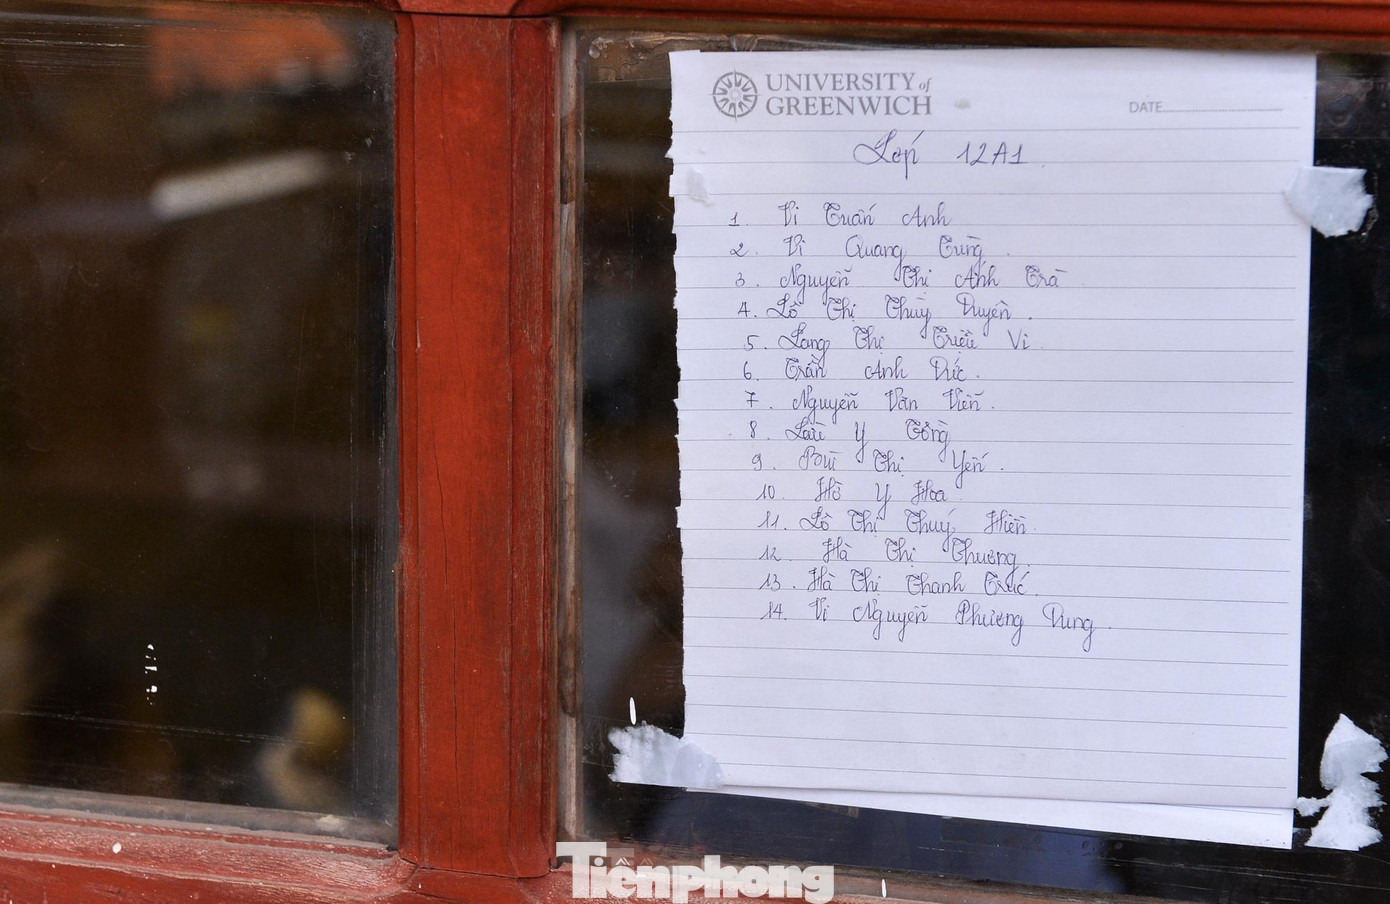 UNIVERSITY of
GREENWICH
DATE
Lớp 12A1
1. Vi Tuấn Anh
2. Vi Quang Tùng
3. Nguyễn Thị Anh Trà
4. Lô Thị Thuỳ Duyên.
5. Lang Thị Triệu Vi
6. Trần Anh Đức.
7. Nguyễn Văn Viễn.
8. Lầu Y Tồng
9. Bùi Thị Yến.
10. Hồ Y Hoa
11. Lô Thị Thuý Hiền
12. Hà Thị Thương
13. Hà Thị Thanh Trúc.
14. Vi Nguyễn Phương Dung.
Tiền phong